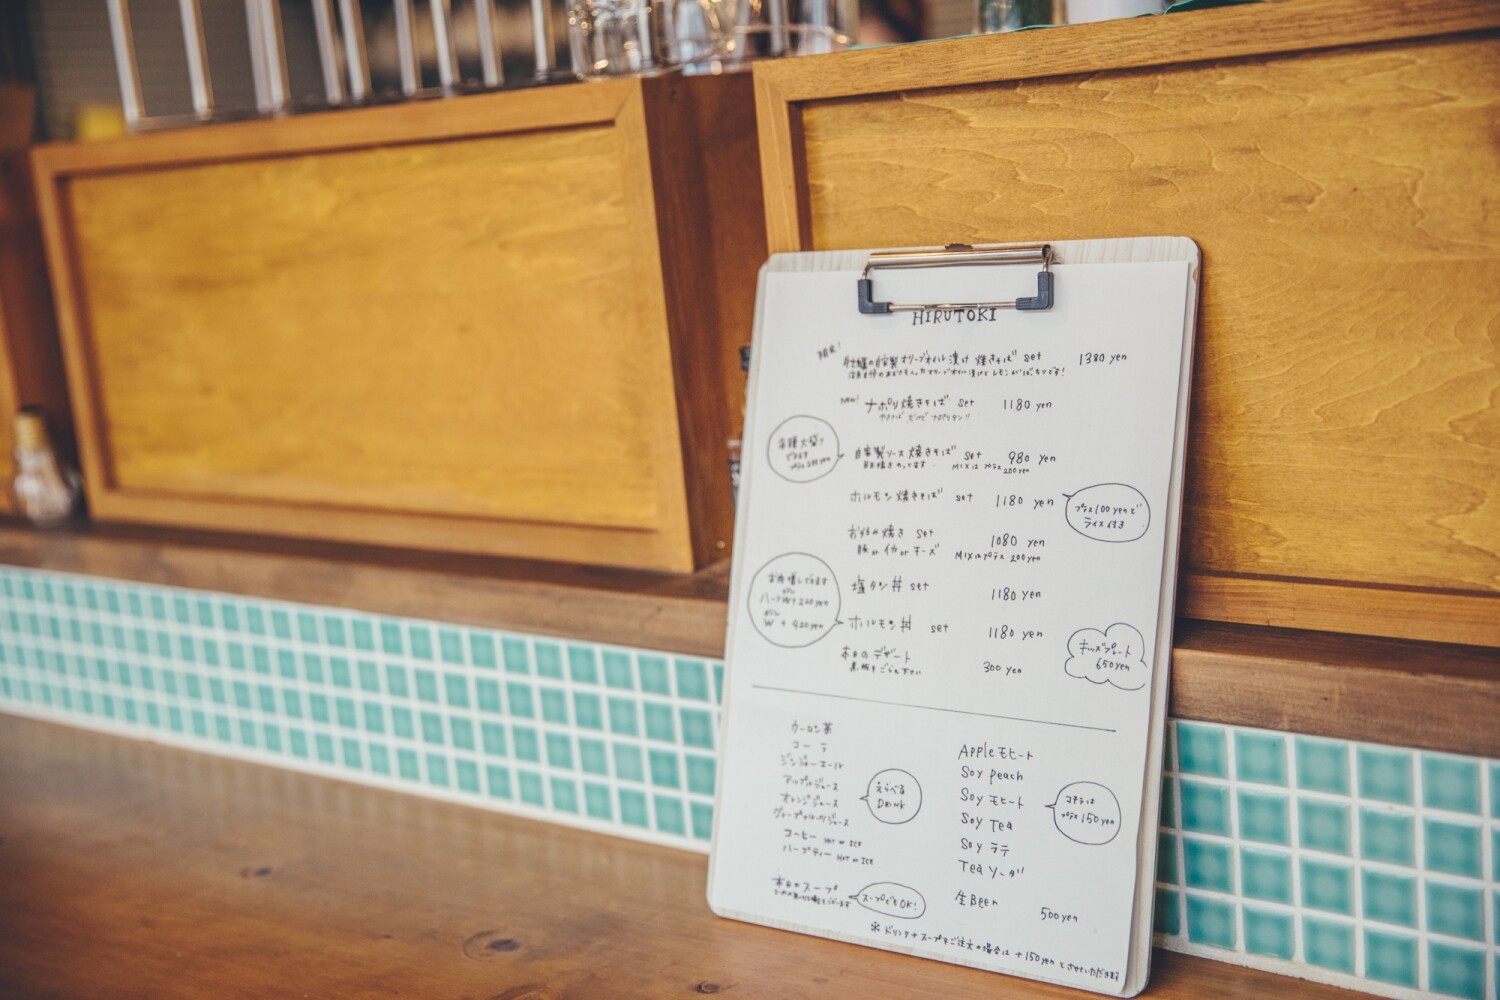 HIRUTOKI
牡蠣の自家製オリーブオイル漬け 焼きそば set 1380 yen
new! ナポリ焼きそば set 1180 yen
全麺大盛り
できます
プラス200yen
自家製ソース焼きそば set 980 yen
目玉焼きのってます。 MIXはプラス200yen
ホルモン焼きそば set 1180 yen
プラス100yenで
ライス付き
お好み焼き set 1080 yen
豚 or イカ or チーズ MIXはプラス200yen
塩タン丼 set 1180 yen
お肉増しできます
W + 420yen
ホルモン丼 set 1180 yen
本日のデザート 300 yen
黒板をごらん下さい
キッズプレート
650yen
ウーロン茶
コーラ
ジンジャーエール
アップルジュース
オレンジジュース
グレープフルーツジュース
コーヒー HOT or ICE
ハーブティー HOT or ICE
えらべる
DRINK
本日のスープ
スープでもOK!
Apple モヒート
Soy peach
Soy モヒート
Soy Tea
Soy ラテ
Tea ソーダ
コチラは
プラス150yen
生Beer 500yen
※ドリンク+スープをご注文の場合は +150yen とさせていただきます